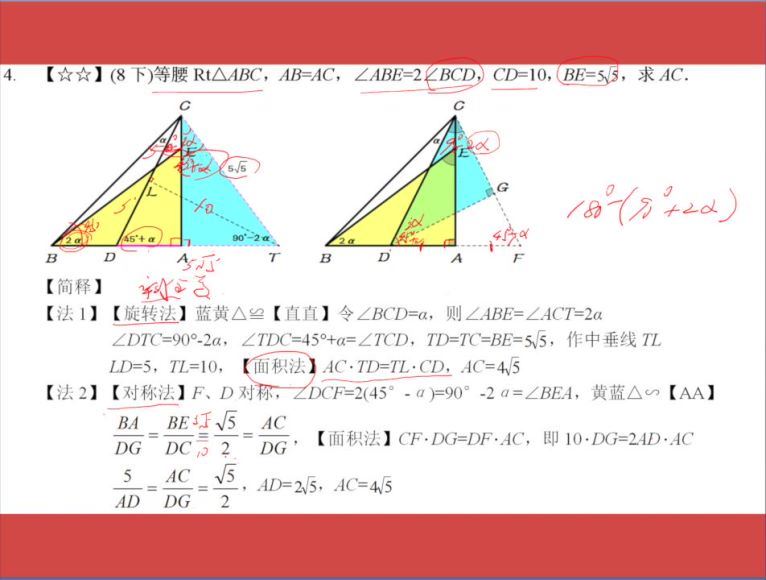 4. 【☆☆】(8下)等腰 Rt△ABC，AB=AC，∠ABE=2∠BCD，CD=10，BE=5√5，求 AC．
C C
α 2α α 90° 2α
E 5√5 E
L 5 10 G
180°-(90°+2α)
2α 45°+α 90°-2α 2α
B D A T B D A F
5√5
【简释】
【法1】【旋转法】蓝黄△≌【直直】令∠BCD=α，则∠ABE=∠ACT=2α
∠DTC=90°-2α，∠TDC=45°+α=∠TCD，TD=TC=BE=5√5，作中垂线 TL
LD=5，TL=10，【面积法】AC·TD=TL·CD，AC=4√5
【法2】【对称法】F、D 对称，∠DCF=2(45°-α)=90°-2α=∠BEA，黄蓝△∽【AA】
BA/DG = BE/DC = 5√5/10 √5/2 = AC/DG，【面积法】CF·DG=DF·AC，即 10·DG=2AD·AC
5/AD = AC/DG = √5/2，AD=2√5，AC=4√5